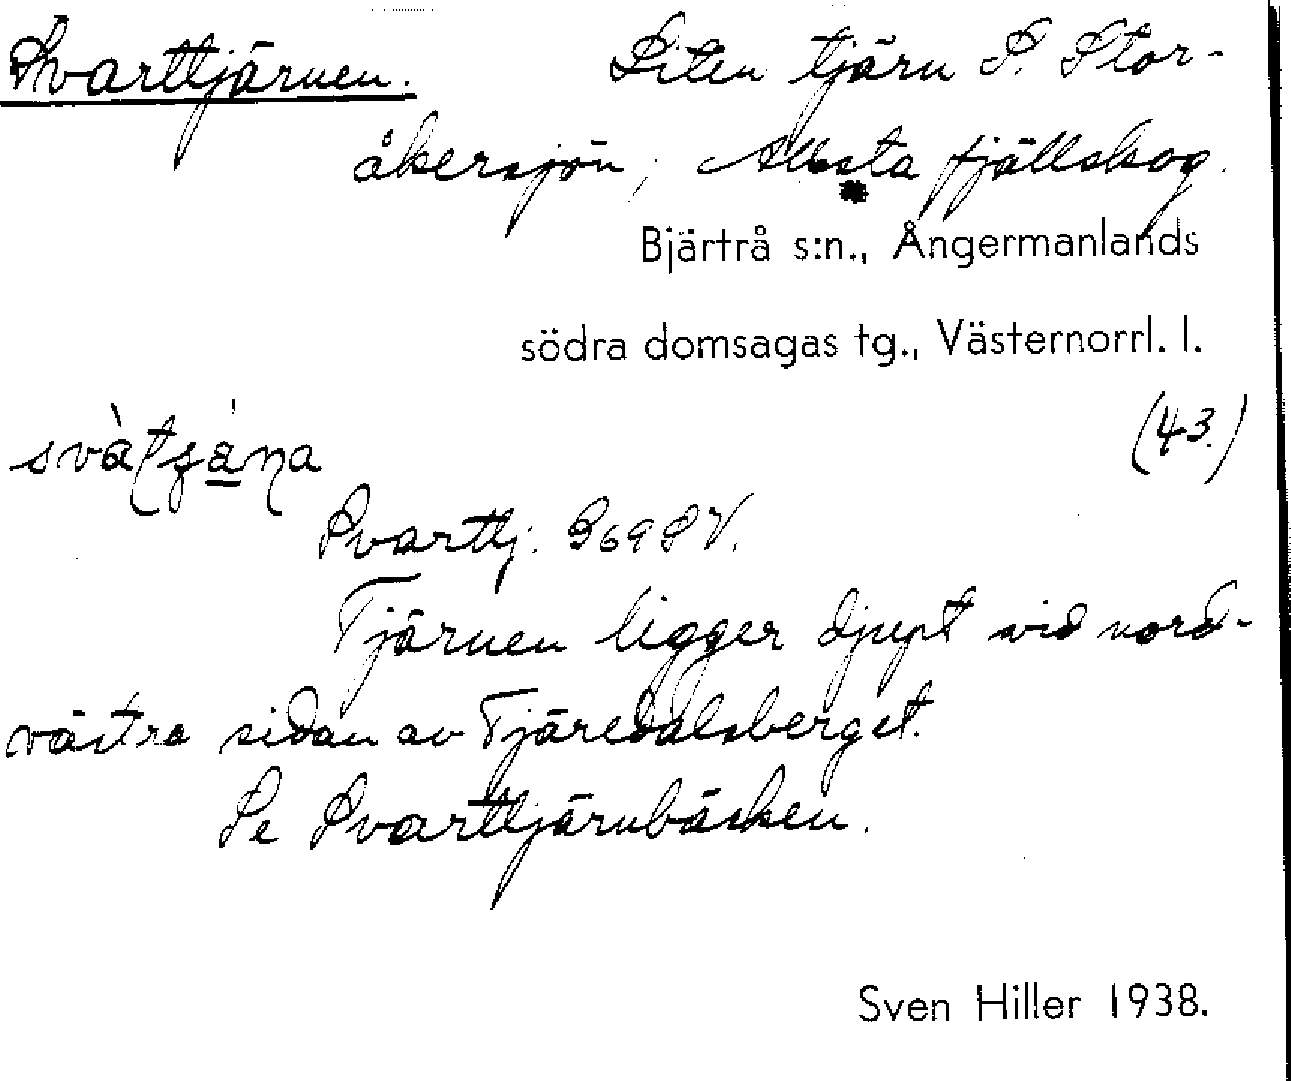 Svarttjärnen. Liten tjärn S. Stor-
åkersjön, Allsta fjällskog.
Bjärtrå s:n., Ångermanlands
södra domsagas tg., Västernorrl. l.
(43.)
Svarttj. G69SV.
Tjärnen ligger djupt vid nord-
västra sidan av Tjäredalsberget.
Se Svarttjärnbäcken.
Sven Hiller 1938.